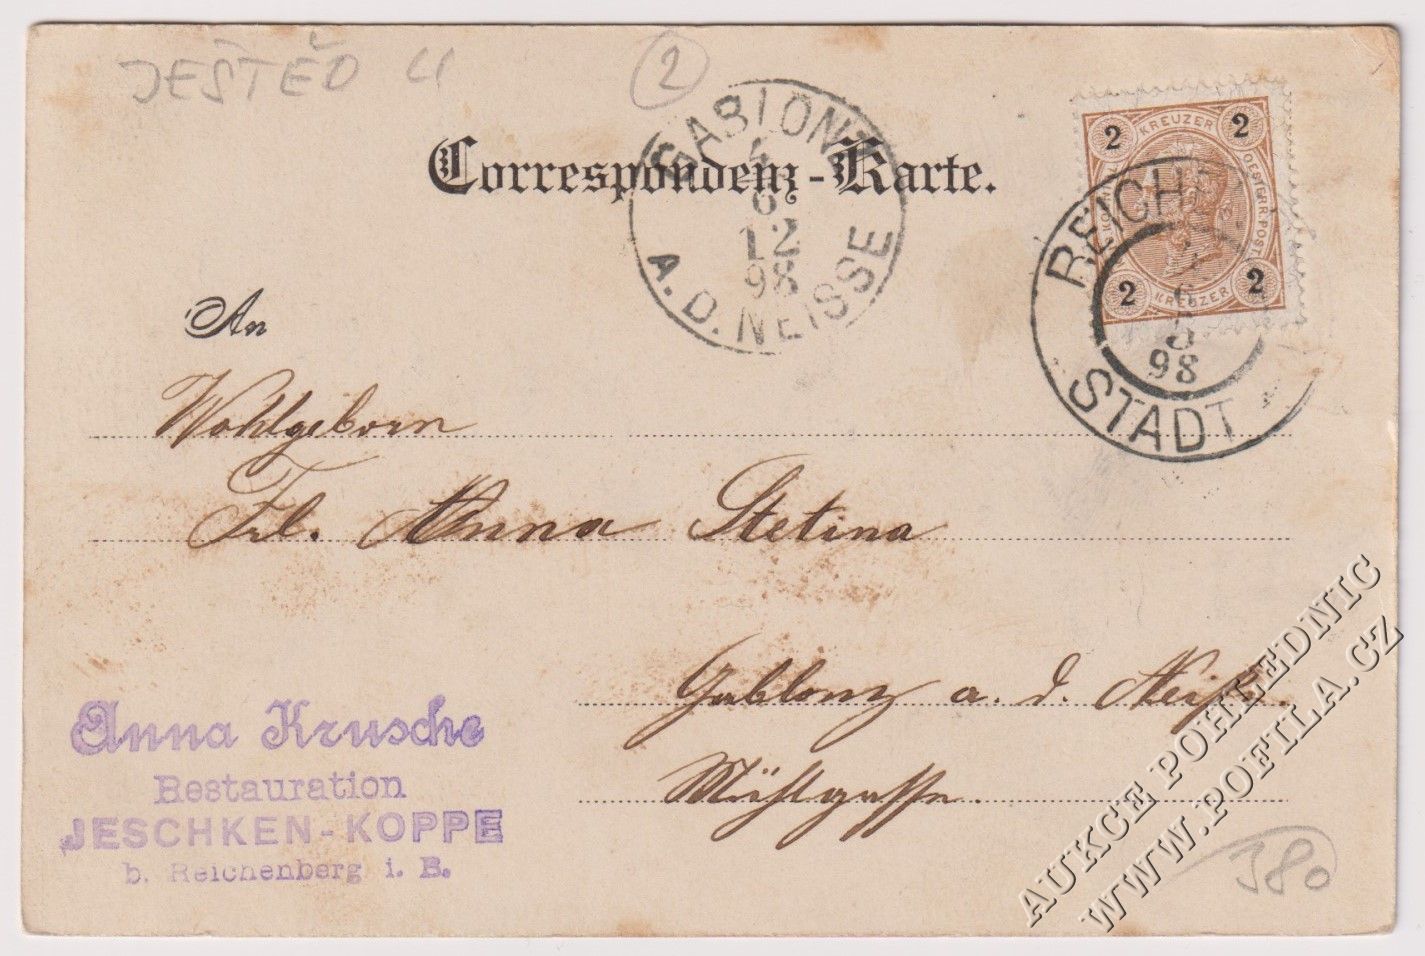 JEŠTĚD 4
2
Correspondenz-Karte.
GABLONZ
6
12
98
A. D. NEISSE
2 KREUZER 2
2 KREUZER 2
REICH
6
5
98
STADT
An
Wohlgeborn
Frl. Anna Stetina
Gablonz a. d. Neiße.
Mühlgasse.
Anna Krusche
Restauration
JESCHKEN-KOPPE
b. Reichenberg i. B.
380
AUKCE POHLEDNIC
WWW.POFILA.CZ